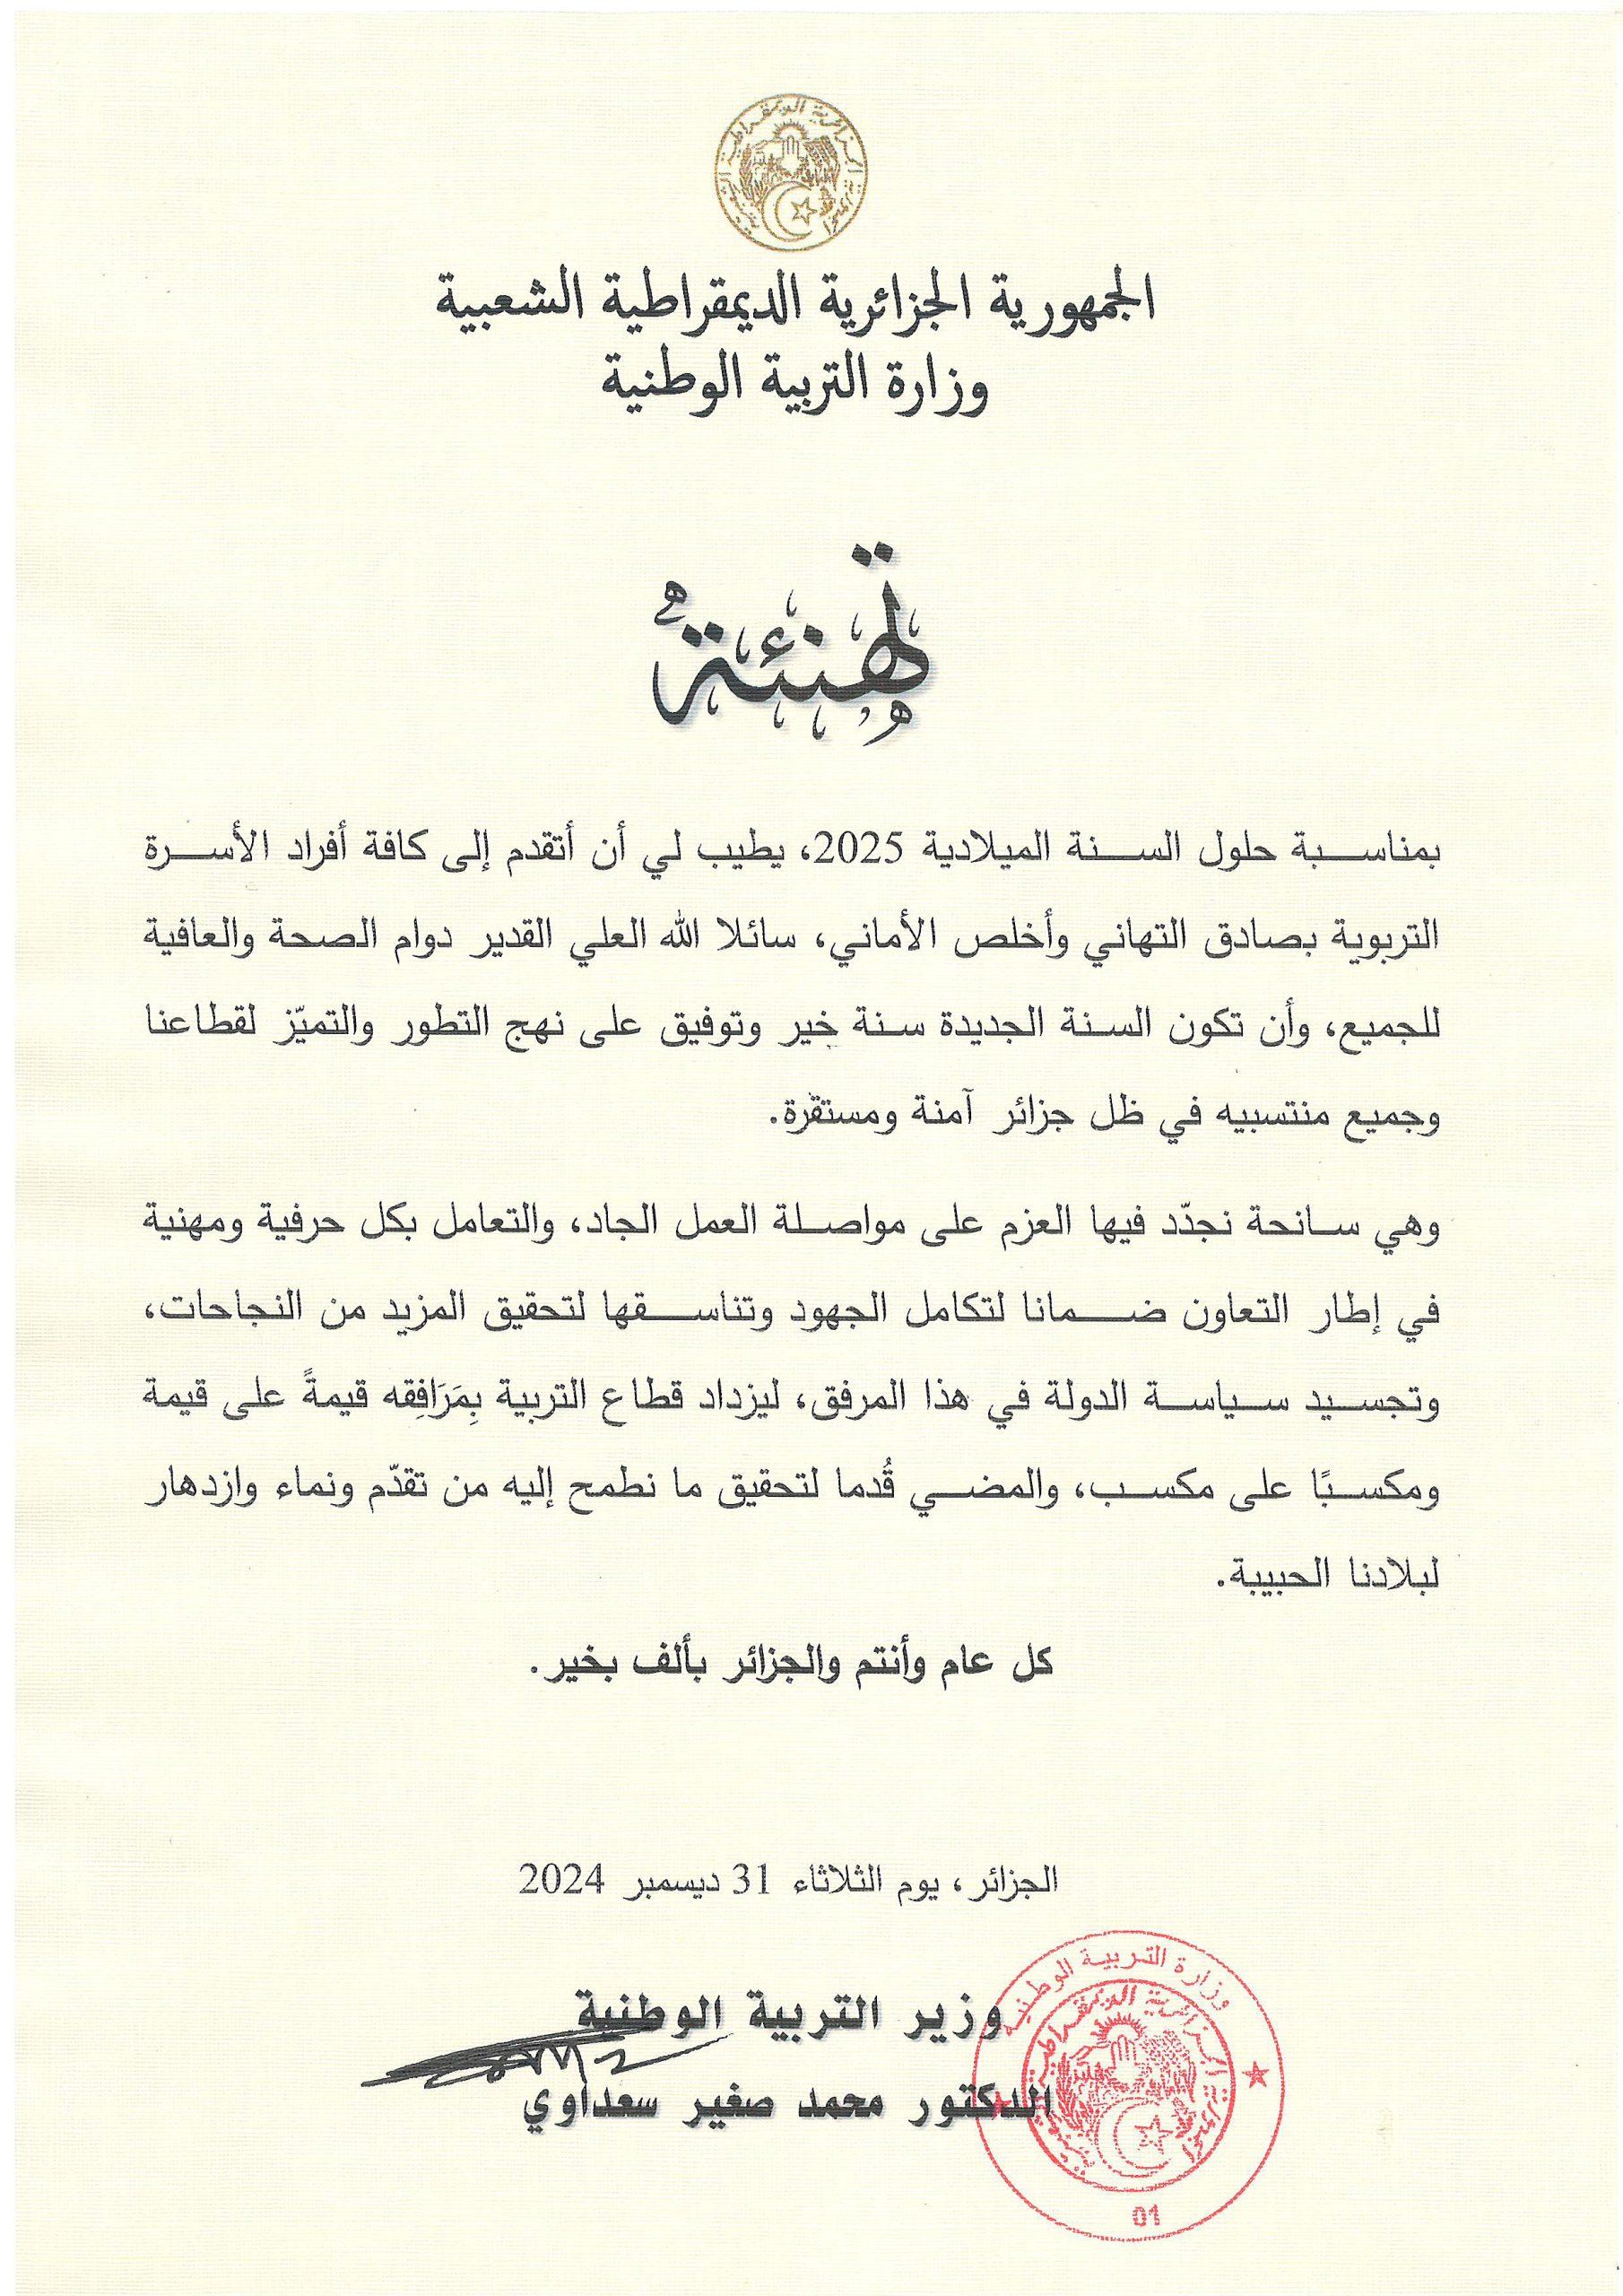 الجمهورية الجزائرية الديمقراطية الشعبية
الجمهورية الجزائرية الديمقراطية الشعبية
وزارة التربية الوطنية
تهنئة
بمناسبة حلول السنة الميلادية 2025، يطيب لي أن أتقدم إلى كافة أفراد الأسرة
التربوية بصادق التهاني وأخلص الأماني، سائلا الله العلي القدير دوام الصحة والعافية
للجميع، وأن تكون السنة الجديدة سنة خير وتوفيق على نهج التطور والتميّز لقطاعنا
وجميع منتسبيه في ظل جزائر آمنة ومستقرّة.
وهي سانحة نجدّد فيها العزم على مواصلة العمل الجاد، والتعامل بكل حرفية ومهنية
في إطار التعاون ضمانا لتكامل الجهود وتناسقها لتحقيق المزيد من النجاحات،
وتجسيد سياسة الدولة في هذا المرفق، ليزداد قطاع التربية بِمَرَافِقه قيمةً على قيمة
ومكسبًا على مكسب، والمضي قُدما لتحقيق ما نطمح إليه من تقدّم ونماء وازدهار
لبلادنا الحبيبة.
كل عام وأنتم والجزائر بألف بخير.
الجزائر، يوم الثلاثاء 31 ديسمبر 2024
وزير التربية الوطنية
الدكتور محمد صغير سعداوي
وزارة التربية الوطنية
الجمهورية الجزائرية الديمقراطية الشعبية
01